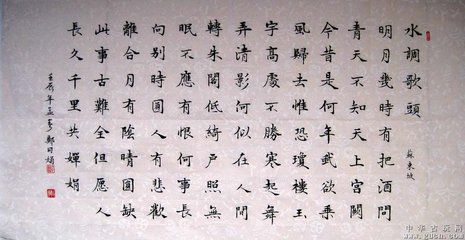 水調歌頭
蘇東坡
明月幾時有把酒問
青天不知天上宮闕
今昔是何年我欲乘
風歸去惟恐瓊樓玉
宇高處不勝寒起舞
弄清影何似在人間
轉朱閣低綺戶照無
眠不應有恨何事長
向別時圓人有悲歡
離合月有陰晴圓缺
此事古難全但願人
長久千里共嬋娟
壬辰年孟春鄭娟
中华古玩网
www.gucn.com